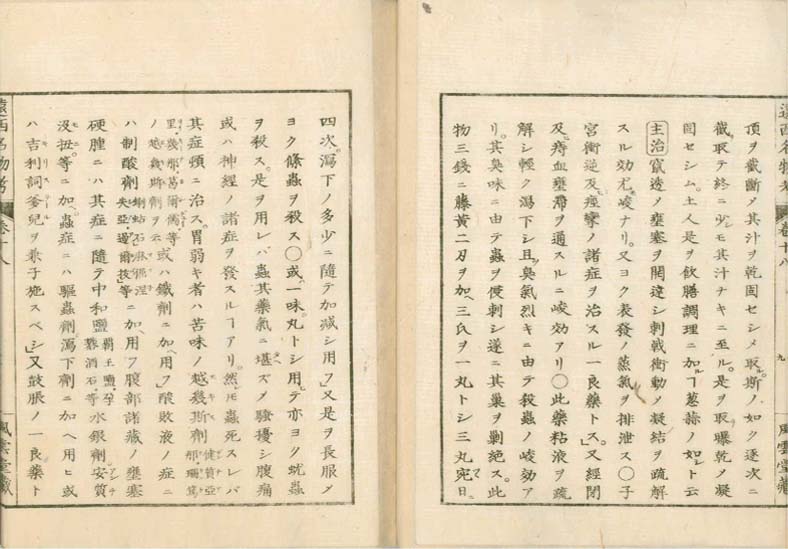 頂ヲ截斷メ其汁ヲ乾固セシメ取ル斯ノ如ク逐次ニ
截取テ終ニ少モ其汁ナキニ至ル是ヲ取曝乾メ凝
固セシム土人是ヲ飲膳調理ニ加フヿ葱蒜ノ如シト云
主治 竄透ノ壅塞ヲ開達シ刺戟衝動メ凝結ヲ疏解
スル効尤峻ナリ又ヨク表發ノ蒸氣ヲ排泄ス〇子
宮衝逆及痙攣ノ諸症ヲ治スル一良藥トス又經閉
及痔血壅滯ヲ通スルニ峻効アリ〇此藥粘液ヲ疏
解シ輕ク瀉下シ且臭氣烈キニ由テ殺蟲ノ峻効ア
リ其臭味ニ由テ蟲ヲ侵刺シ遂ニ其巢ヲ剿絶ス此
物三錢ニ藤黃二刃ヲ加ヘ三氏ヲ一丸トシ三丸宛日
遠西名物考 卷十八 九 風雲堂藏
四次瀉下ノ多少ニ隨テ加減シ用フ又是ヲ長服メ
ヨク條蟲ヲ殺ス〇或一味丸トシ用テ亦ヨク蚘蟲
ヲ殺ス是ヲ用レバ蟲其藥氣ニ堪ズメ騷擾シ腹痛
或ハ神經ノ諸症ヲ發スルヿアリ然ドモ蟲死スレバ
其症頓ニ治ス胃弱キ者ハ苦味ノ越幾斯劑 健質亞 那
里幾那 葛爾僃等ノ越幾斯劑ヲ云 或ハ鐵劑ニ加ヘ用フ酸敗液ノ症ニ
ハ制酸劑 蝲蛄石 等ニ加ヘ用フ腹部諸藏ノ壅塞
硬腫ニハ其症ニ隨テ中和鹽 覇王鹽 酒石等 水銀劑安質
没扭等ニ加ヘ蟲症ニハ驅蟲劑瀉下劑ニ加ヘ用ヒ或
ハ吉利詞爹兒ヲ兼子施スベシ又鼓脹ノ一良藥ト
遠西名物考 卷十八 風雲堂藏